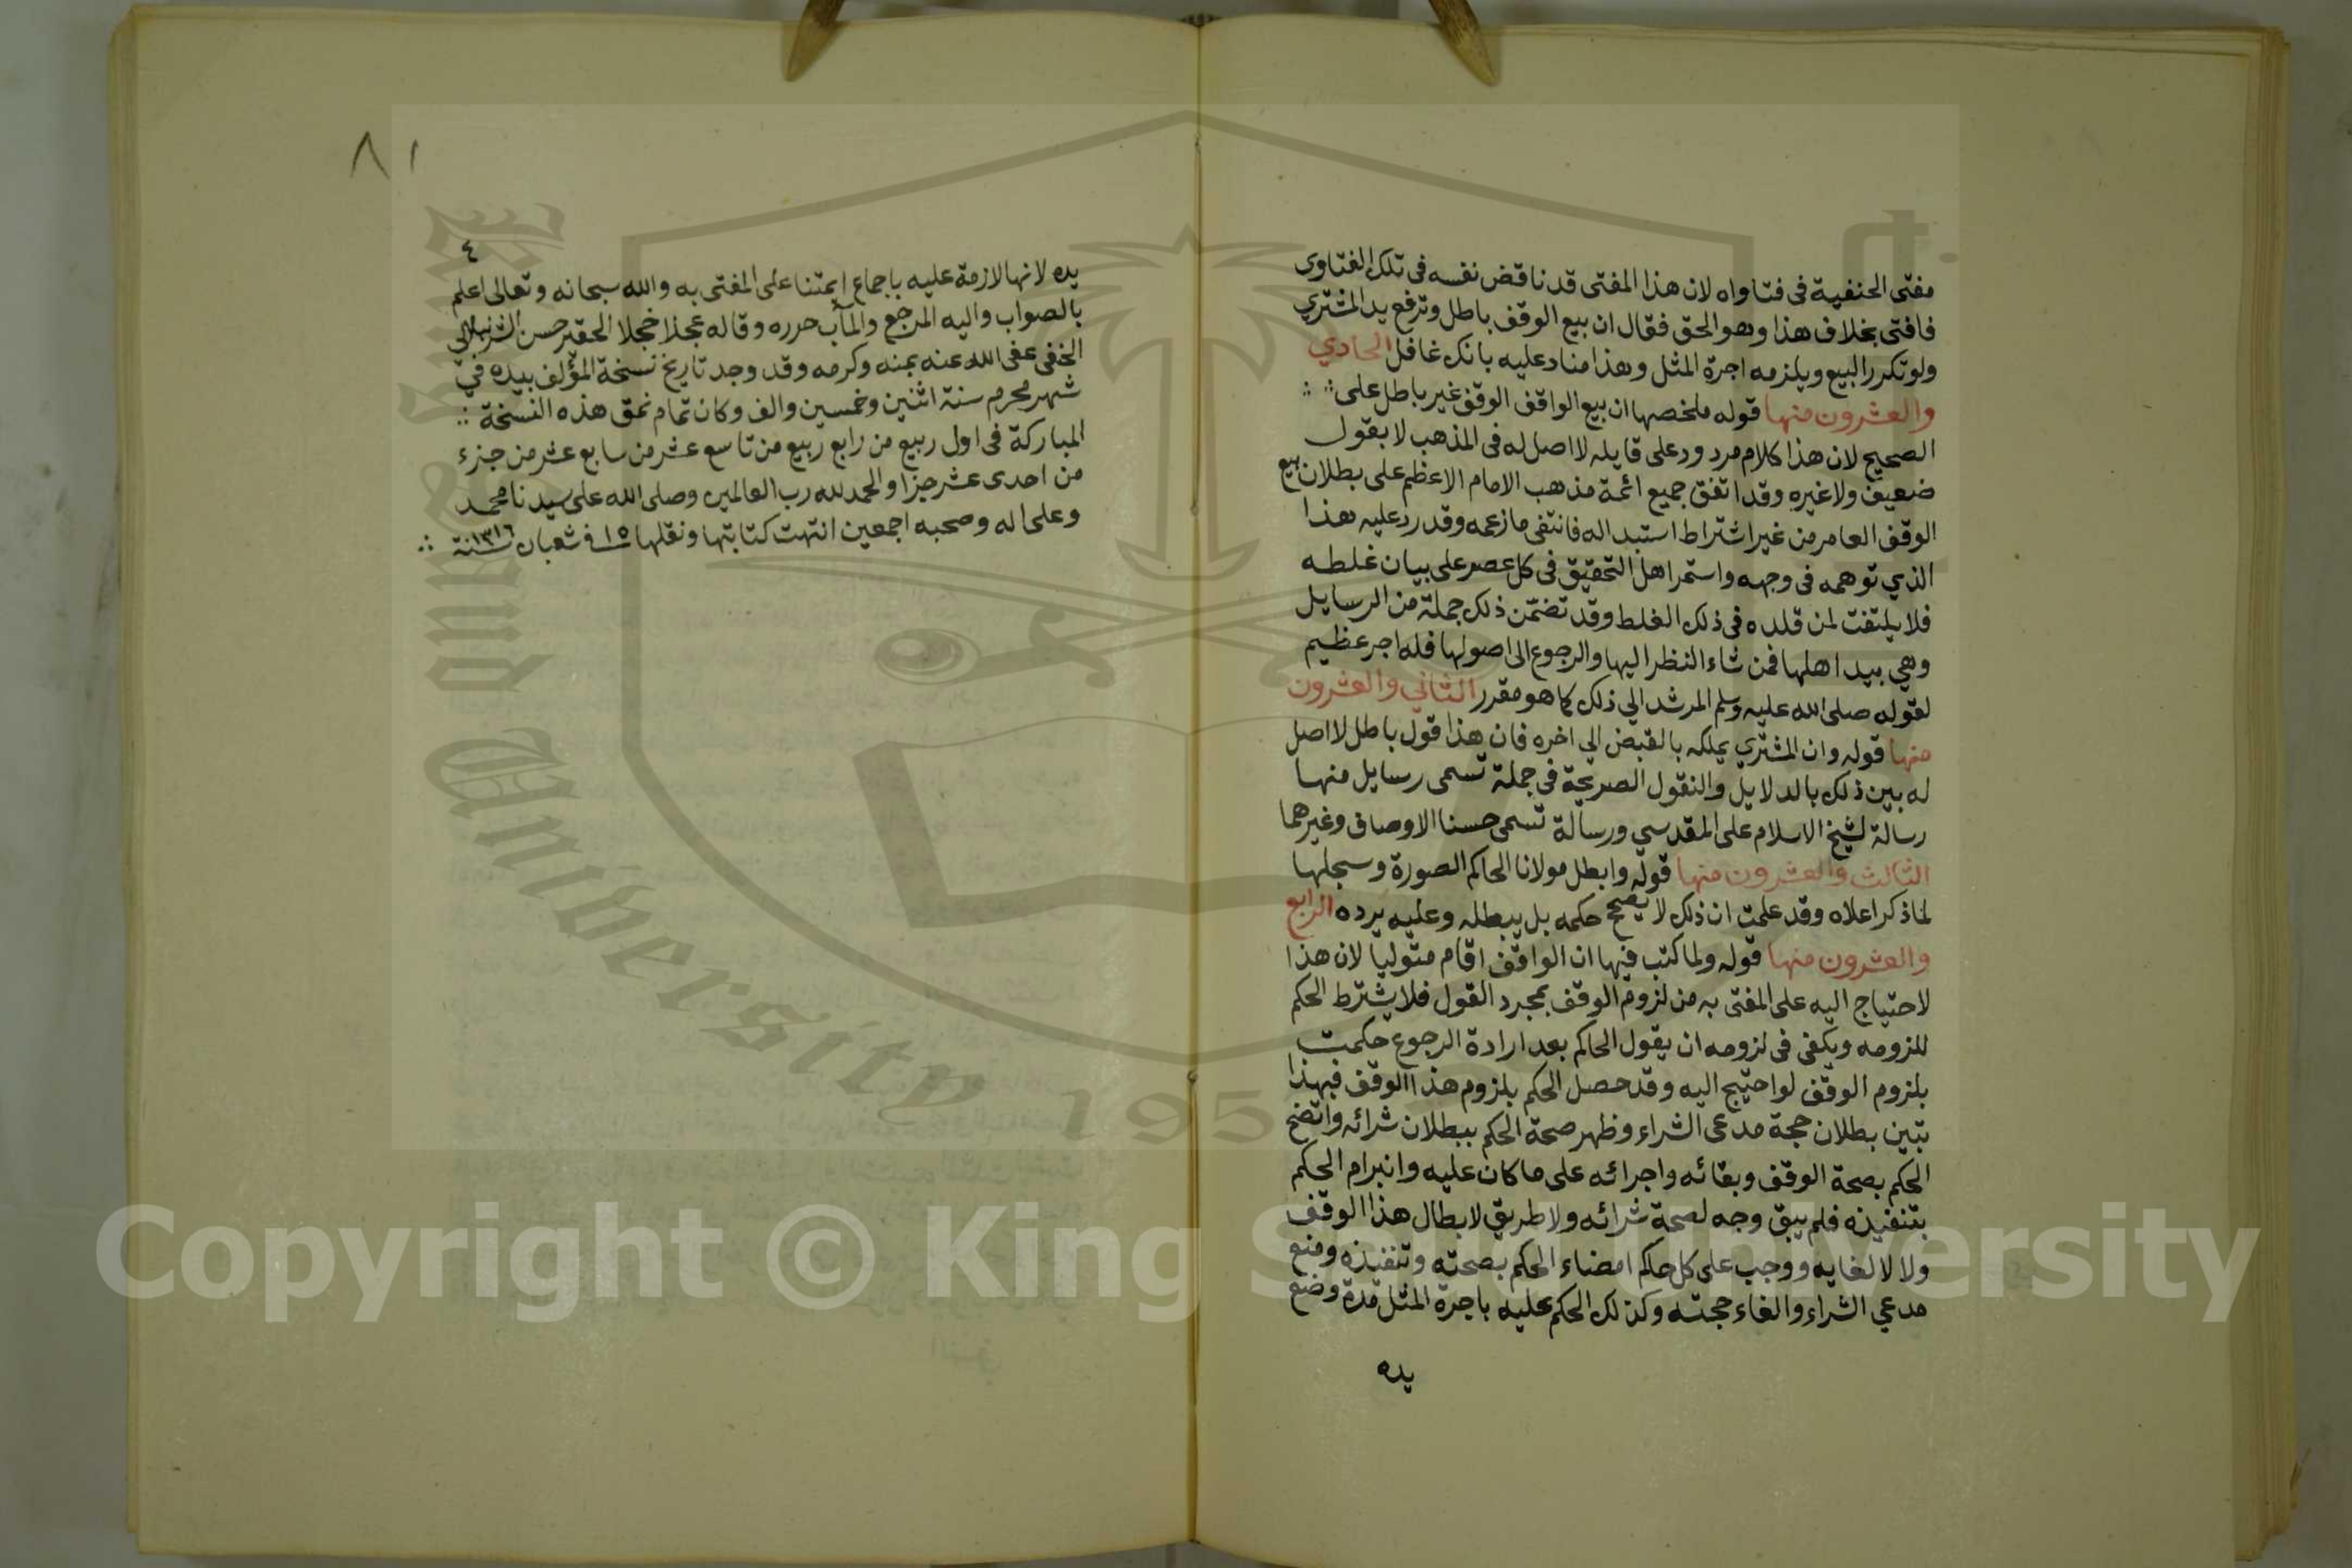 مفتى الحنفية فى فتاواه لان هذا المفتى قد ناقض نفسه فى تلك الفتاوى
فافتى بخلاف هذا وهو الحق فقال ان بيع الوقف باطل وترفع يد المشتري
ولو تكرر البيع ويلزمه اجرة المثل وهذا مناد عليه بانك غافل الحادي
والعشرون منها قوله ملخصها ان بيع الواقف الوقف غير باطل على
الصحيح لان هذا كلام مردود على قايله لا اصل له فى المذهب لا بقول
ضعيف ولا غيره وقد اتفق جميع ائمة مذهب الامام الاعظم على بطلان بيع
الوقف العامر من غير اشتراط استبداله فانتفى ما زعمه وقد رد عليه هذا
الذي توهمه فى وجهه واستمر اهل التحقيق فى كل عصر على بيان غلطه
فلا يلتفت لمن قلده فى ذلك الغلط وقد تضمّن ذلك جملة من الرسايل
وهي بيد اهلها فمن شاء النظر اليها والرجوع الى اصولها فله اجر عظيم
لقوله صلى الله عليه وسلم المرشد الي ذلك كما هو مقرر الثاني والعشرون
منها قوله وان المشتري يملكه بالقبض الي اخره فان هذا قول باطل لا اصل
له بين ذلك بالدلايل والنقول الصريحة فى جملة تسمى رسايل منها
رسالة لشيخ الاسلام على المقدسي ورسالة تسمى حسنا الاوصاف وغيرهما
الثالث والعشرون منها قوله وابطل مولانا الحاكم الصورة وسجلها
لما ذكر اعلاه وقد علمت ان ذلك لا يصح حكمه بل يبطله وعليه يرده الرابع
والعشرون منها قوله ولما كتب فيها ان الواقف اقام متوليا لان هذا
لا حتياج اليه على المفتى به من لزوم الوقف بمجرد القول فلا يشترط الحكم
للزومه ويكفى فى لزومه ان يقول الحاكم بعد ارادة الرجوع حكمت
بلزوم الوقف لو احتيج اليه وقد حصل الحكم بلزوم هذا الوقف فبهذا
تبين بطلان حجة مدعى الشراء وظهر صحة الحكم ببطلان شرائه واتضح
الحكم بصحة الوقف وبقائه واجرائه على ما كان عليه وانبرام الحكم
بتنفيذه فلم يبق وجه لصحة شرائه ولا طريق لابطال هذا الوقف
ولا لالغايه ووجب على كل حاكم امضاء الحكم بصحته وتنفيذه ومنع
مدعي الشراء والغاء حجته وكذلك الحكم عليه باجرة المثل مدة وضع
يده
٨١
٤
يده لانها لازمة عليه باجماع ايمتنا على المفتى به والله سبحانه وتعالى اعلم
بالصواب واليه المرجع والمآب حرره وقاله عجلا خجلا الحقير حسن الشرنبلالى
الحنفى عفى الله عنه بمنه وكرمه وقد وجد تاريخ نسخة المؤلف بيده في
شهر محرم سنة اثنين وخمسين والف وكان تمام نمق هذه النسخة
المباركة فى اول ربيع من رابع ربيع من تاسع عشر من سابع عشر من جزء
من احدى عشر جزا والحمد لله رب العالمين وصلى الله على سيدنا محمد
وعلى اله وصحبه اجمعين انتهت كتابتها ونقلها ١٥ فى شعبان سنة ١٣١٦
King Saud University
1957
Copyright © King Saud University